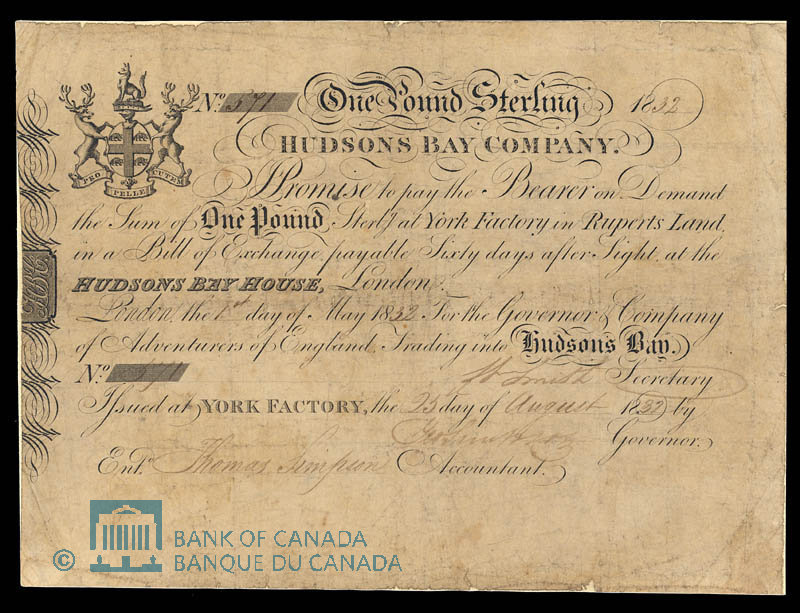 No. 571 One Pound Sterling 1832
HUDSONS BAY COMPANY.
PRO PELLE CUTEM
I Promise to pay the Bearer on Demand
the Sum of One Pound Sterlg. at York Factory in Ruperts Land
in a Bill of Exchange payable Sixty days after Sight at the
HUDSONS BAY HOUSE, London.
London, the 1st day of May 1832 For the Governor & Company
of Adventurers of England Trading into Hudsons Bay.
No. 571 Smith Secretary
Issued at YORK FACTORY, the 25 day of August 1832 by
Governor.
Entd. Thomas Simpson Accountant.
HBC
© BANK OF CANADA
BANQUE DU CANADA